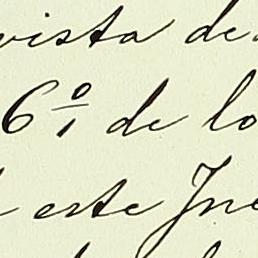 vista de
6º de lo
este Jne